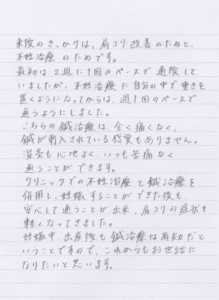 来院のきっかけは、肩コリ改善のためと、
不妊治療のためです。
最初は2週に1回のペースで通院して
いましたが、不妊治療に自分の中で重きを
置くようになってからは、週1回のペースで
通うようにしました。
こちらの鍼治療は、全く痛くなく、
鍼が刺入されている感覚もありません。
温灸も心地よく、いつも苦痛なく
通うことができます。
クリニックでの不妊治療と鍼治療を
併用し、妊娠することができた後も、
安心して通うことが出来、肩コリの症状も
軽くなってきました。
妊娠中、出産後も鍼治療は有効だと
いうことですので、これからもお世話に
なりたいと思います。